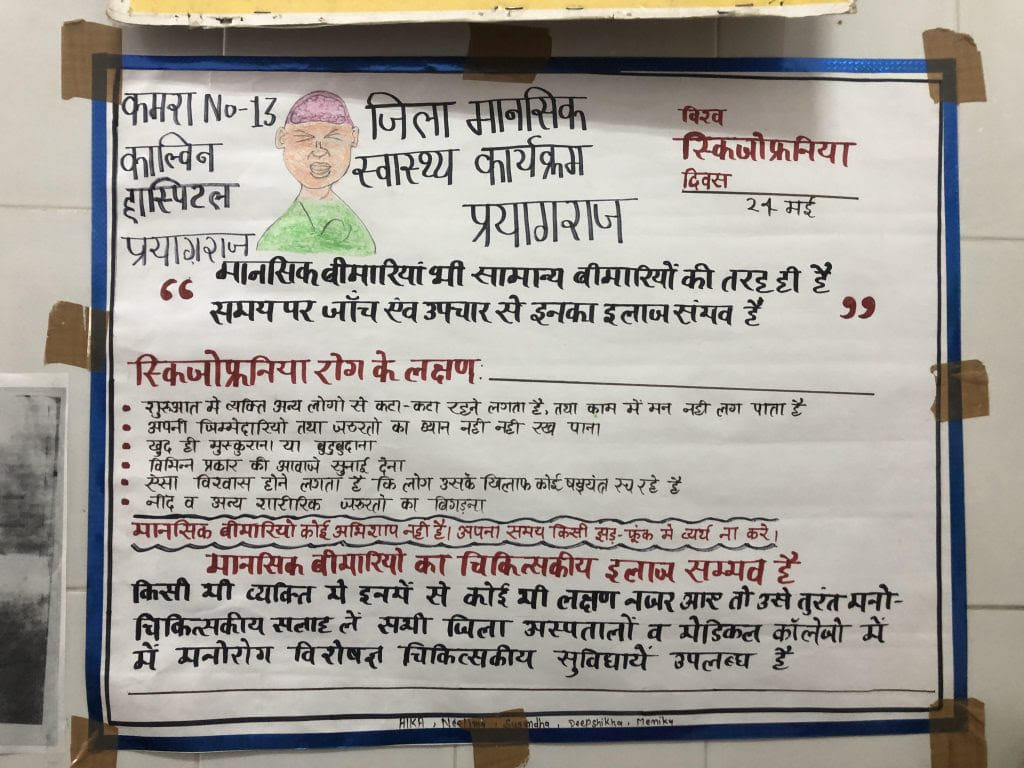 कमरा No-13
काल्विन
हास्पिटल
प्रयागराज
जिला मानसिक
स्वास्थ्य कार्यक्रम
प्रयागराज
विश्व
स्किजोफ्रनिया
दिवस
24 मई
“ मानसिक बीमारियां भी सामान्य बीमारियों की तरह ही है
समय पर जाँच एंव उपचार से इनका इलाज संभव है ”
स्किजोफ्रनिया रोग के लक्षण:
• शुरुआत मे व्यक्ति अन्य लोगो से कटा-कटा रहने लगता है, तथा काम में मन नही लग पाता है
• अपनी जिम्मेदारियो तथा जरुरतो का ध्यान नही नही रख पाना
• खुद ही मुस्कुराना या बुदबुदाना
• विभिन्न प्रकार की आवाजे सुनाई देना
• ऐसा विश्वास होने लगता है कि लोग उसके खिलाफ कोई षड्यंत्र रच रहे है
• नीद व अन्य शारीरिक जरुरतो का बिगड़ना
मानसिक बीमारियो कोई अभिशाप नही है। अपना समय किसी झड़-फूंक मे व्यर्थ ना करे।
मानसिक बीमारियो का चिकित्सकीय इलाज सम्भव है
किसी भी व्यक्ति मे इनमें से कोई भी लक्षण नजर आए तो उसे तुरंत मनो-
चिकित्सकीय सलाह लें सभी जिला अस्पतालों व मेडिकल कॉलेजो में
में मनोरोग विशेषज्ञ चिकित्सकीय सुविधायें उपलब्ध है
Sugandha, Deepshikha,